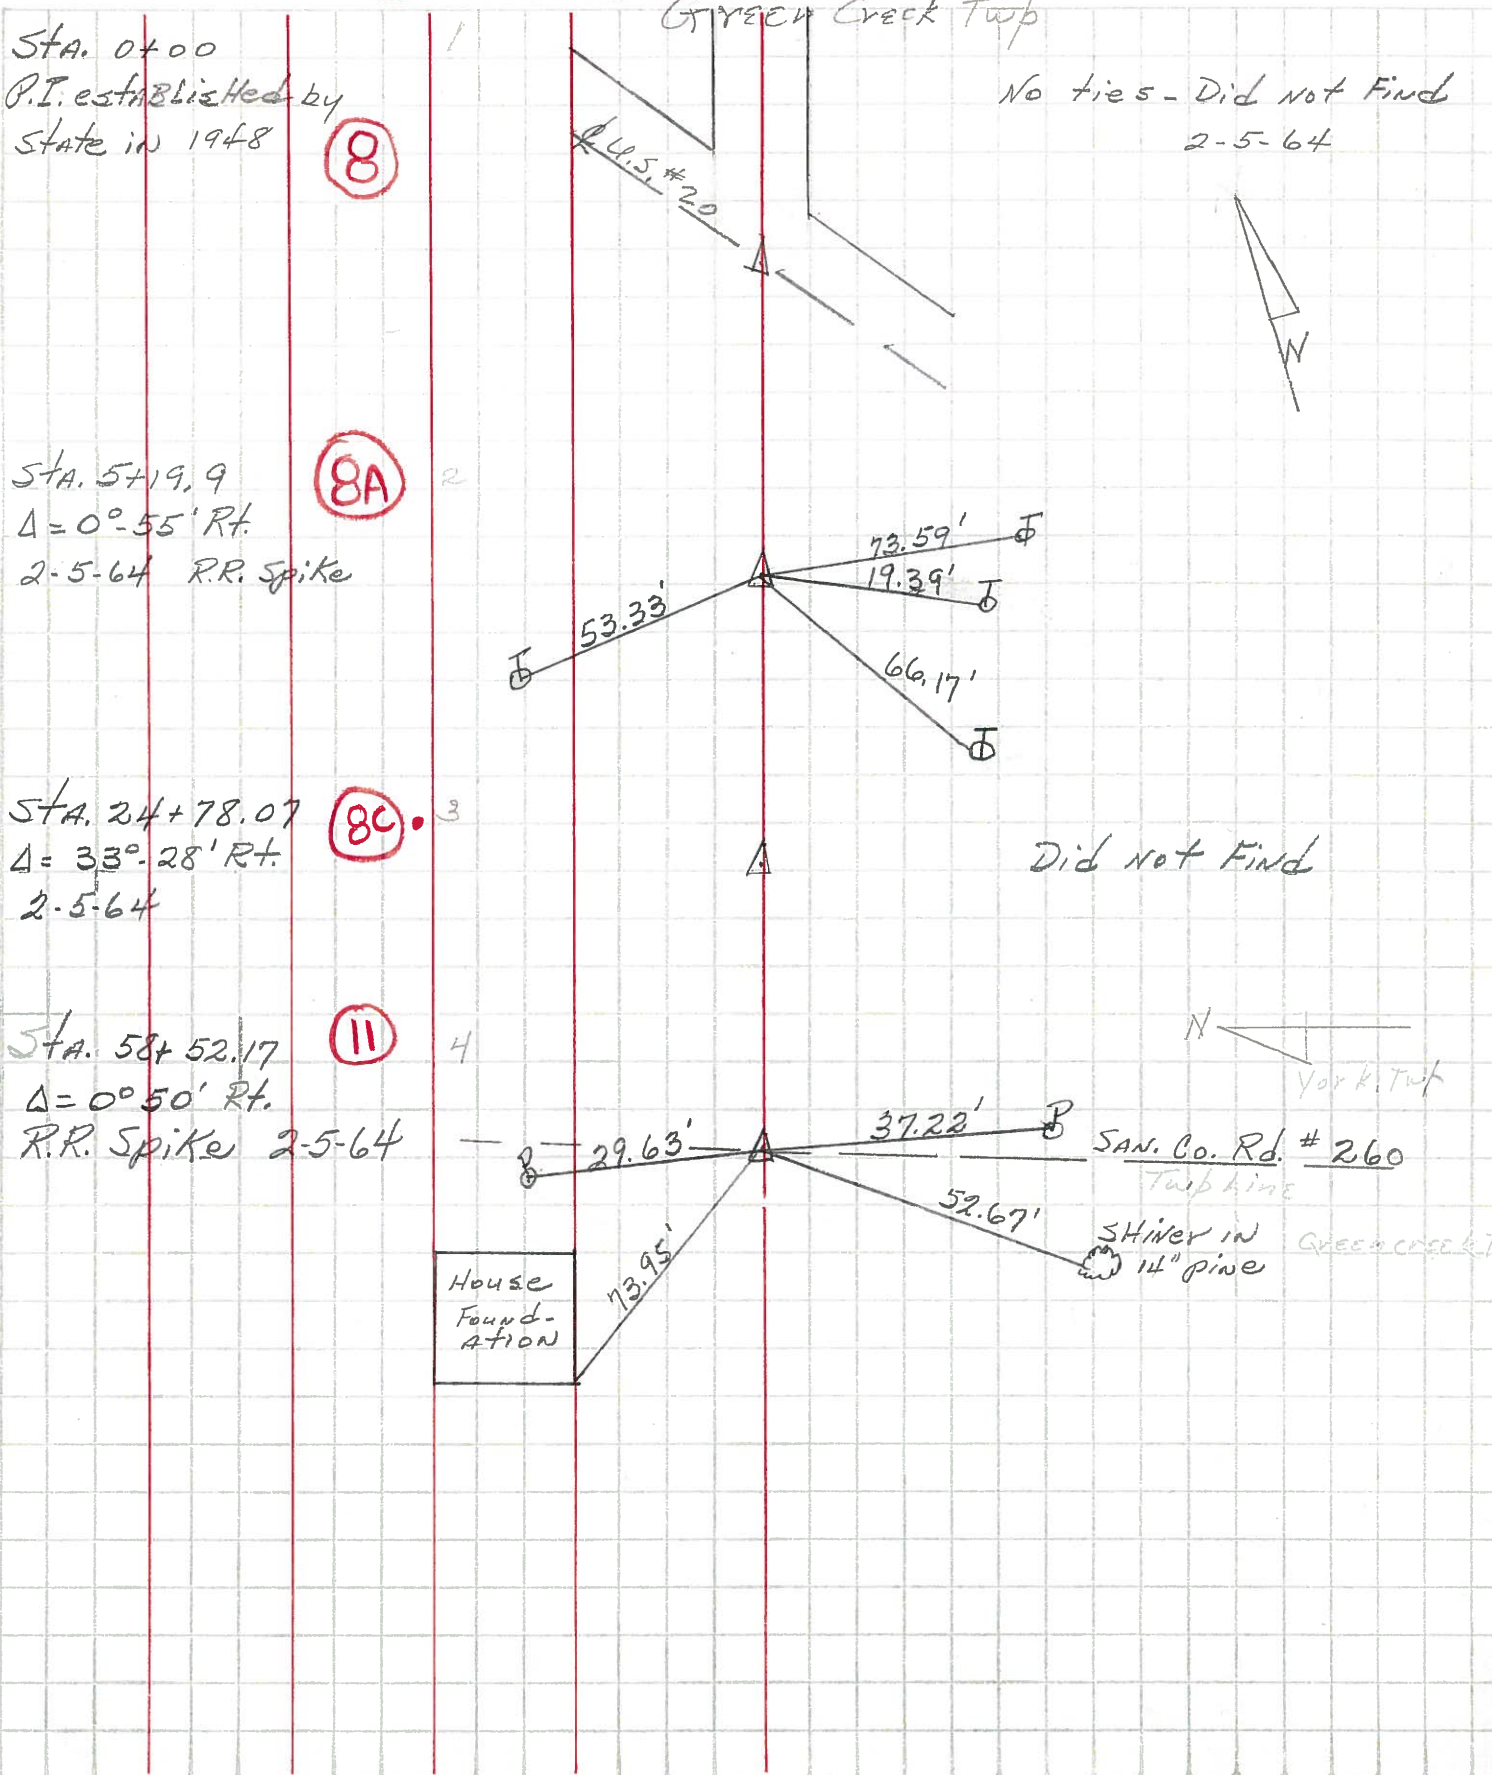 Green Creek Twp
Sta. 0+00
P.I. established by
State in 1948
8
1
No ties - Did Not Find
2-5-64
℄ U.S. #20
N
Sta. 5+19.9
Δ = 0°-55' Rt.
2-5-64 R.R. Spike
8A
2
73.59'
19.39'
53.33'
66.17'
T
T
T
T
Sta. 24+78.07
Δ = 33°-28' Rt.
2-5-64
8C.
3
Did Not Find
Sta. 58+52.17
Δ = 0°50' Rt.
R.R. Spike 2-5-64
11
4
N
York. Twp
P
29.63'
37.22'
P
San. Co. Rd. #260
Twp Line
52.67'
Shiner in
14" pine
Green creek T
73.95'
House
Found-
ation